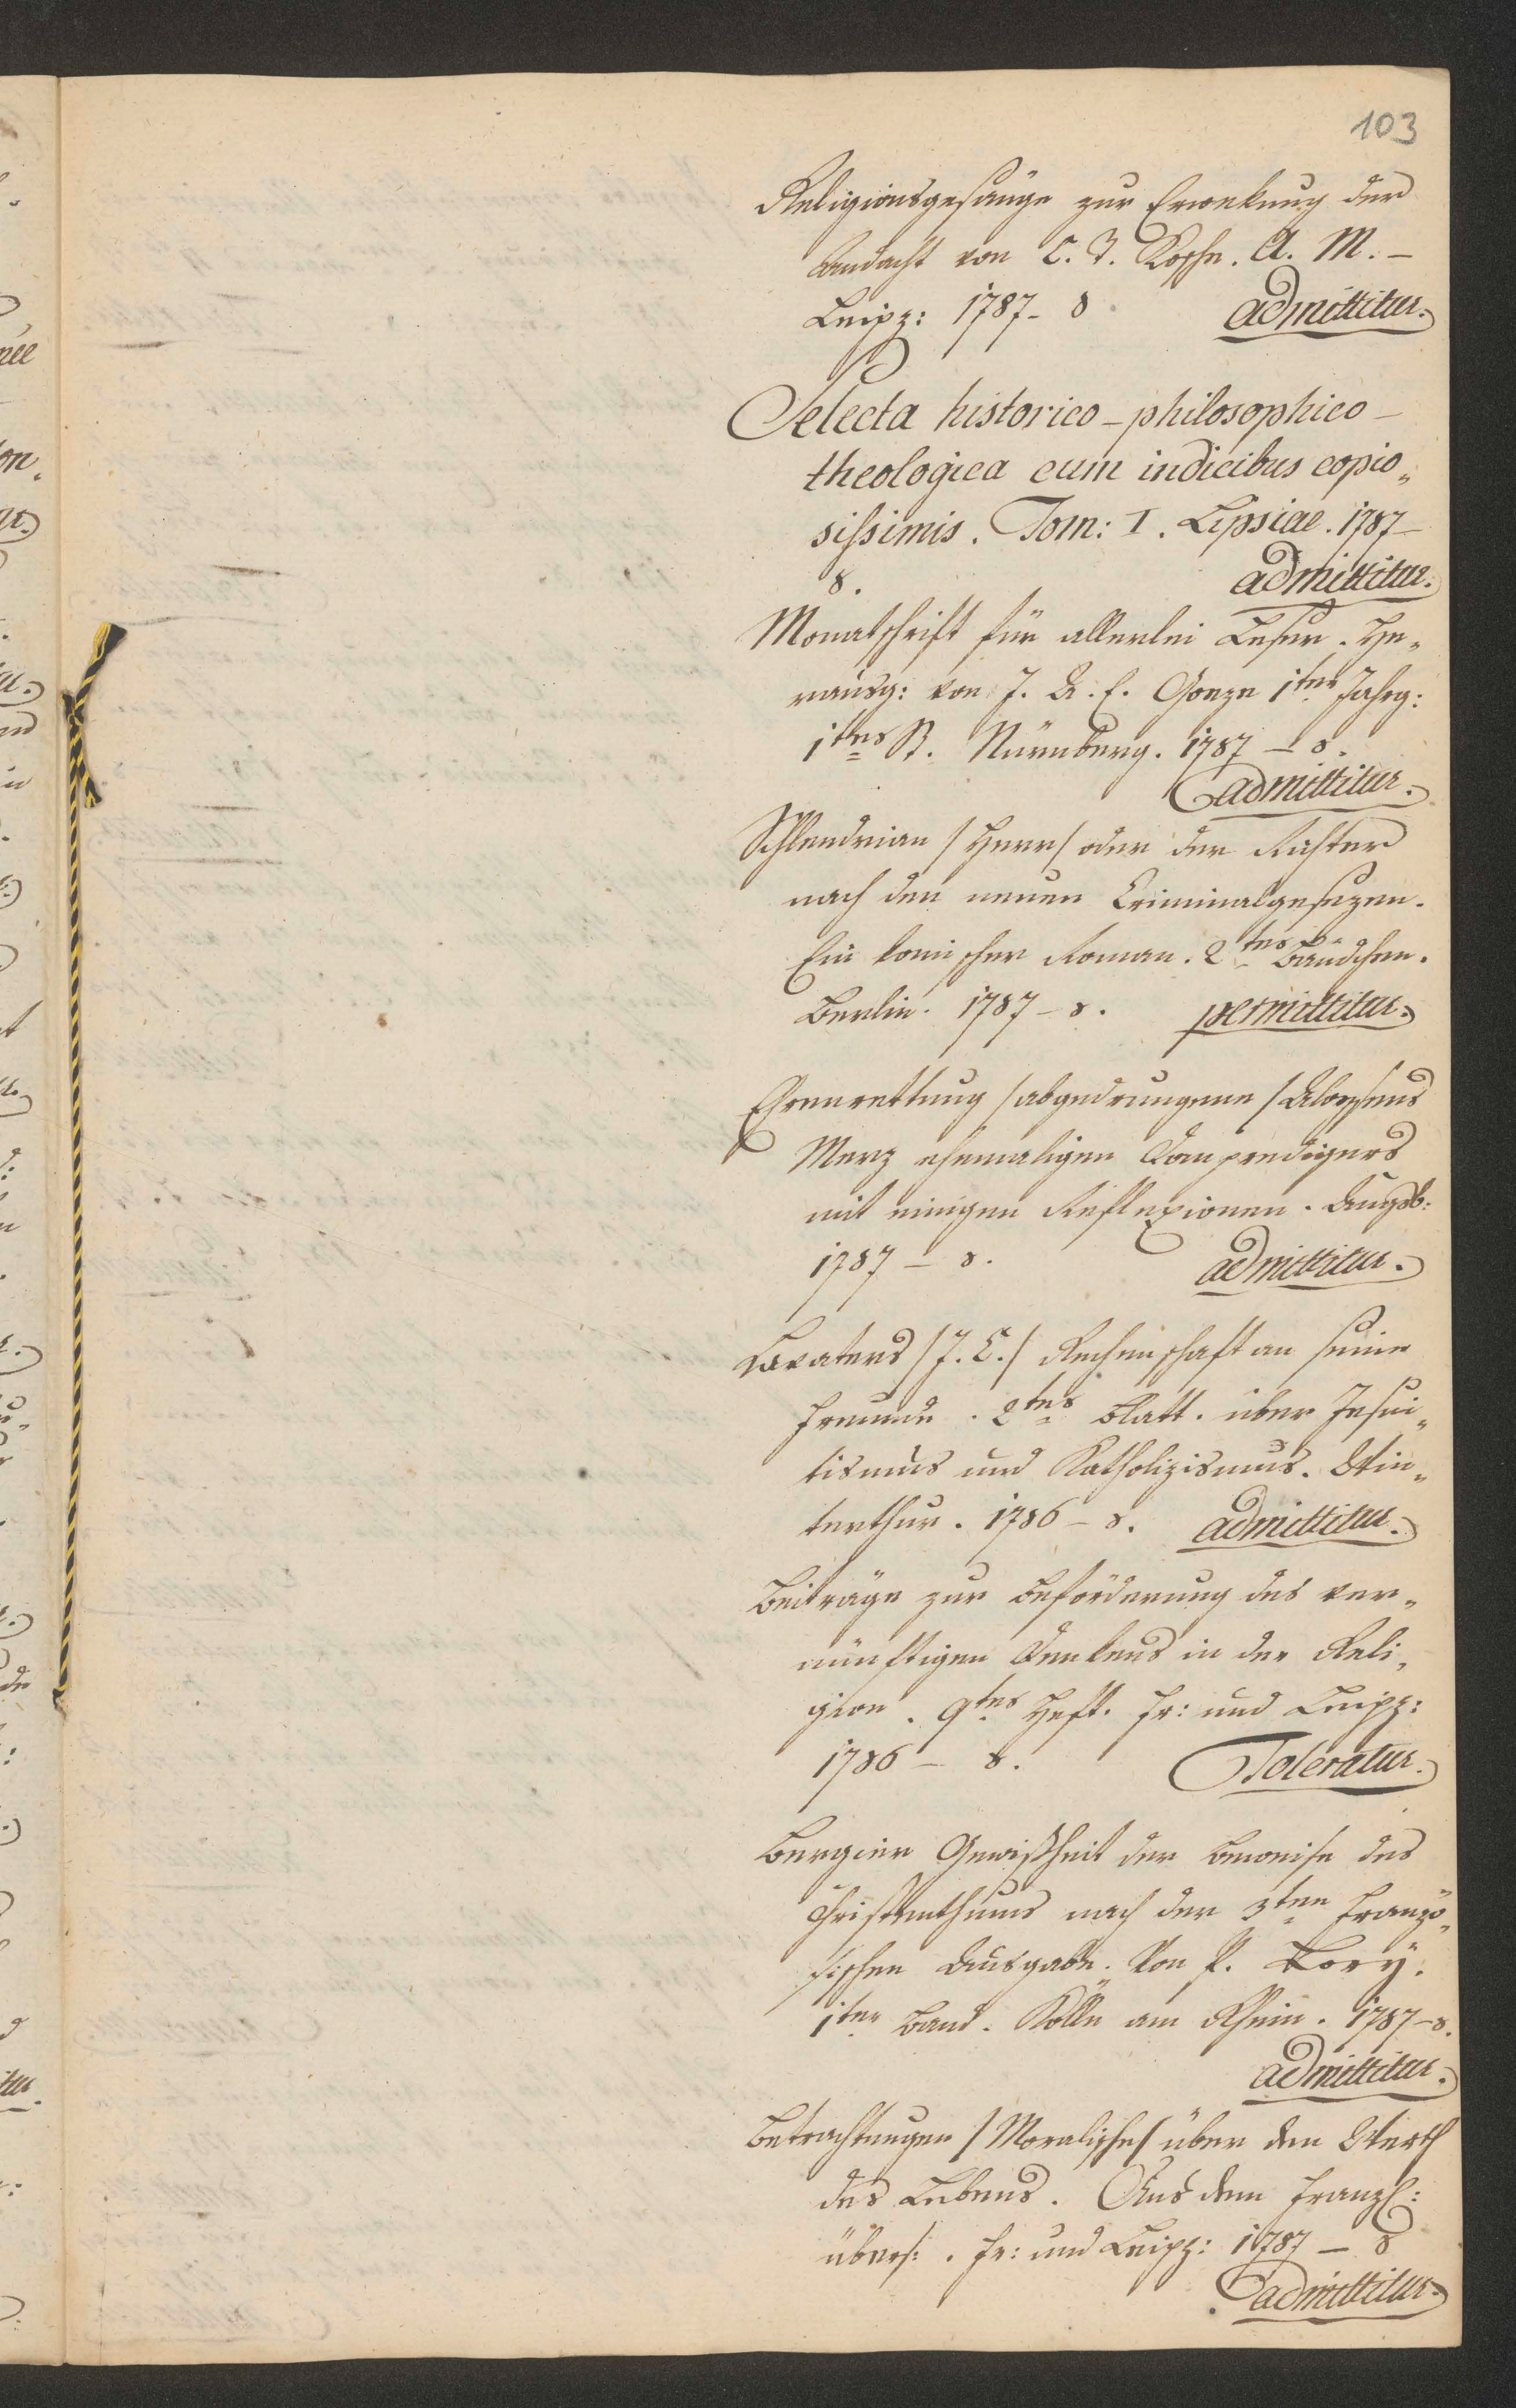 103
Religionsgesänge zur Erwekung der
Andacht von C. F. Koppe. A. M. –
Leipz: 1787 – 8. admittitur.
Selecta historico-philosophico-
theologica cum indicibus copio„
sissimis. Tom: I. Lipsiae. 1787 –
8. admittitur.
Monatschrift für allerlei Leser. He„
rausg: von J. A. E. Goeze 1ter Jahrg:
1tes St. Nürnberg. 1787 – 8.
admittitur.
Schlendrian /Herr/ oder der Richter
nach den neuen Criminalgesezen.
Ein komischer Roman. 2tes Bändchen.
Berlin. 1787 – 8. permittitur.
Ehrenrettung /abgedrungene/ Aloysens
Merz ehemaligen Dompredigers
mit einigen Reflexionen. Augsb:
1787 – 8. admittitur.
Lavaters /J. C./ Rechenschaft an seine
Freunde. 2tes Blatt. über Jesui„
tismus und Katholizismus. Win„
terthur. 1786 – 8. admittitur.
Beiträge zur Beförderung des ver„
nünftigen Denkens in der Reli„
gion. 9tes Heft. Fr: und Leipz:
1786 – 8. Toleratur.
Bergier Gewißheit der Beweise des
Christenthums nach der 3ten Franzö„
sischen Ausgabe. Von P. Bory.
1ter Band. Kölln am Rhein. 1787 – 8.
admittitur.
Betrachtungen /Moralische/ über den Werth
des Lebens. Aus dem Franzſ:
übers:. Fr: und Leipz: 1787 – 8
admittitur.